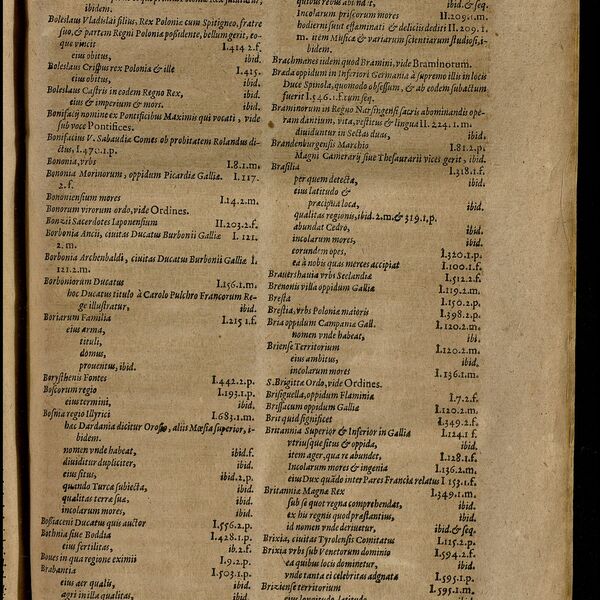 ibidem.
Boleslaus Vladislai filius, Rex Poloniæ cum Spitigneo, fratre
suo, & partem Regni Poloniæ possidente, bellum gerit, eo-
que vincit I.414.2.f.
eius obitus, ibid.
Boleslaus Crispus rex Poloniæ & ille I.415.
eius obitus, ibid.
Boleslaus Castris in eodem Regno Rex,
eius & imperium & mors. ibid.
Bonifacij nomen ex Pontificibus Maximis qui vocati, vide
sub voce Pontifices.
Bonifacius V. Sabaudiæ Comes ob probitatem Rolandus di-
ctus, I.470.1.p.
Bononia, vrbs I.8.1.m.
Bononia Morinorum, oppidum Picardiæ Galliæ. I.117.
2.f.
Bononiensium mores I.14.2.m.
Bonorum virorum ordo, vide Ordines.
Bonzii Sacerdotes Iaponensium II.203.2.f.
Borbonia Ancii, ciuitas Ducatus Burbonii Galliæ I. 121.
2.m.
Borbonia Archenbaldi, ciuitas Ducatus Burbonii Galliæ I.
121.2.m.
Borboniorum Ducatus I.156.1.m.
hoc Ducatus titulo à Carolo Pulchro Francorum Re-
ge illustratur, ibid.
Boriarum Familia I.215 1.f.
eius arma,
tituli,
domus,
prouentus, ibid.
Borysthenis Fontes I.442.2.p.
Boscorum regio I.193.1.p.
eius termini, ibid.
Bosnia regio Illyrici I.683.1.m.
hæc Dardania dicitur Orosio, aliis Mœsia superior, i-
bidem.
nomen vnde habeat, ibid.f.
diuiditur dupliciter, ibid.
eius situs, ibid.p.
quando Turcæ subiecta, ibid.
qualitas terræ suæ, ibid.
incolarum mores, ibid.
Bossiaceni Ducatus quis auctor I.556.2.p.
Bothnia siue Boddia I.428.1.p.
eius fertilitas, ib.2.f.
Boues in qua regione eximii I.9.2.p.
Brabantia I.503.1.p.
eius aer qualis, ibid.
agri in illa qualitas, ibid.
quibus rebus abundet, ibid.& seq.
Incolarum priscorum mores II.209.1.m.
hodie sunt effæminati & deliciis dediti II. 209. 1.
m. item Musicæ & variarum scientiarum studiosi, i-
bidem.
Brachmanes iidem quod Bramini, vide Braminorum.
Brada oppidum in Inferiori Germania à supremo illis in locis
Duce Spinola, quomodo obsessum, & ab eodem subactum
fuerit I.546.1.f.tum seq.
Braminorum in Regno Narsingensi sacris abominandis ope-
ram dantium, vita, vestitus & lingua II. 224. 1. m.
diuiduntur in Sectas duas, ibid.
Brandenburgensis Marchio I.81.2.p.
Magni Camerarij siue Thesaurarij vices gerit, ibid.
Brasilia I.318.1.f.
per quem detecta, ibid.
eius latitudo &
præcipua loca, ibid.
qualitas regionis, ibid.2.m.& 319.1.p.
abundat Cedro, ibid.
incolarum mores, ibid.
eorundem opes, ibid.
ea à nobis quas merces accipiat I.320.1.p.
Brauershauia vrbs Seelandiæ I.100.1.f.
Brenonis villa oppidum Galliæ I.512.2.f.
Bresta I.119.2.m.
Brestia, vrbs Polonia maioris I.150.2.p.
Bria oppidum Campaniæ Gall. I.398.2.p.
nomen vnde habeat, I.120.2.m.
Briense Territorium ibi.
eius ambitus, I.120.2.m.
incolarum mores ibid.
S. Brigittæ Ordo, vide Ordines. I.136.1.m.
Brisiguella, oppidum Flaminia
Brissacum oppidum Galliæ I.7.2.f.
Brit quid significet I.120.2.m.
Britannia Superior & Inferior in Gallia I.349.2.f.
vtriusque situs & oppida, I.124.1 f.
item ager, qua re abundet, ibid.
Incolarum mores & ingenia I.128.1.f.
eius Dux quâdo inter Pares Francia relatus I 153.1.f. I.136.2.m.
Britannia Magna Rex I.349.1.m.
sub se quot regna comprehendat, ibid.
ex hu regnis quod præstantius, ibid.
id nomen vnde deriuetur, ibid.& seq.
Brixia, ciuitas Tyrolensis Comitatus I.115.2.p.
Brixia vrbs sub Venetorum dominio I.594.2.f.
ea quibus locis dominetur, ibid.
vnde tanta ei celebritas adgnata I.595.1.p.
Briziense territorium I.595.1.m.
eius longitudo, latitudo ibid.